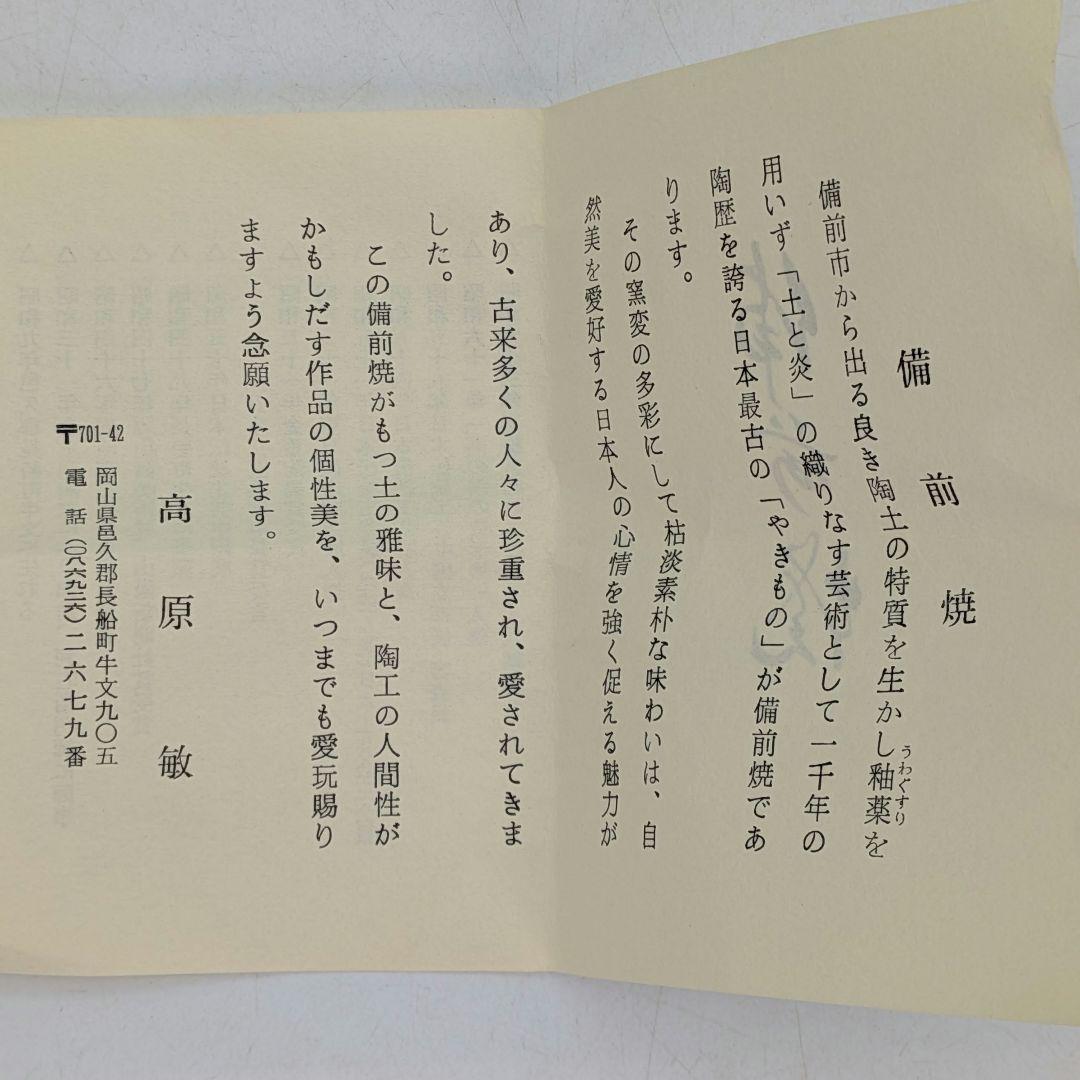 備前焼
備前市から出る良き陶土の特質を生かし釉薬を
うわぐすり
用いず「土と炎」の織りなす芸術として一千年の
陶歴を誇る日本最古の「やきもの」が備前焼であ
ります。
その窯変の多彩にして枯淡素朴な味わいは、自
然美を愛好する日本人の心情を強く促える魅力が
あり、古来多くの人々に珍重され、愛されてきま
した。
この備前焼がもつ土の雅味と、陶工の人間性が
かもしだす作品の個性美を、いつまでも愛玩賜り
ますよう念願いたします。
高原敏
〒701-42
岡山県邑久郡長船町牛文九〇五
電話(〇八六九二六)二六七九番